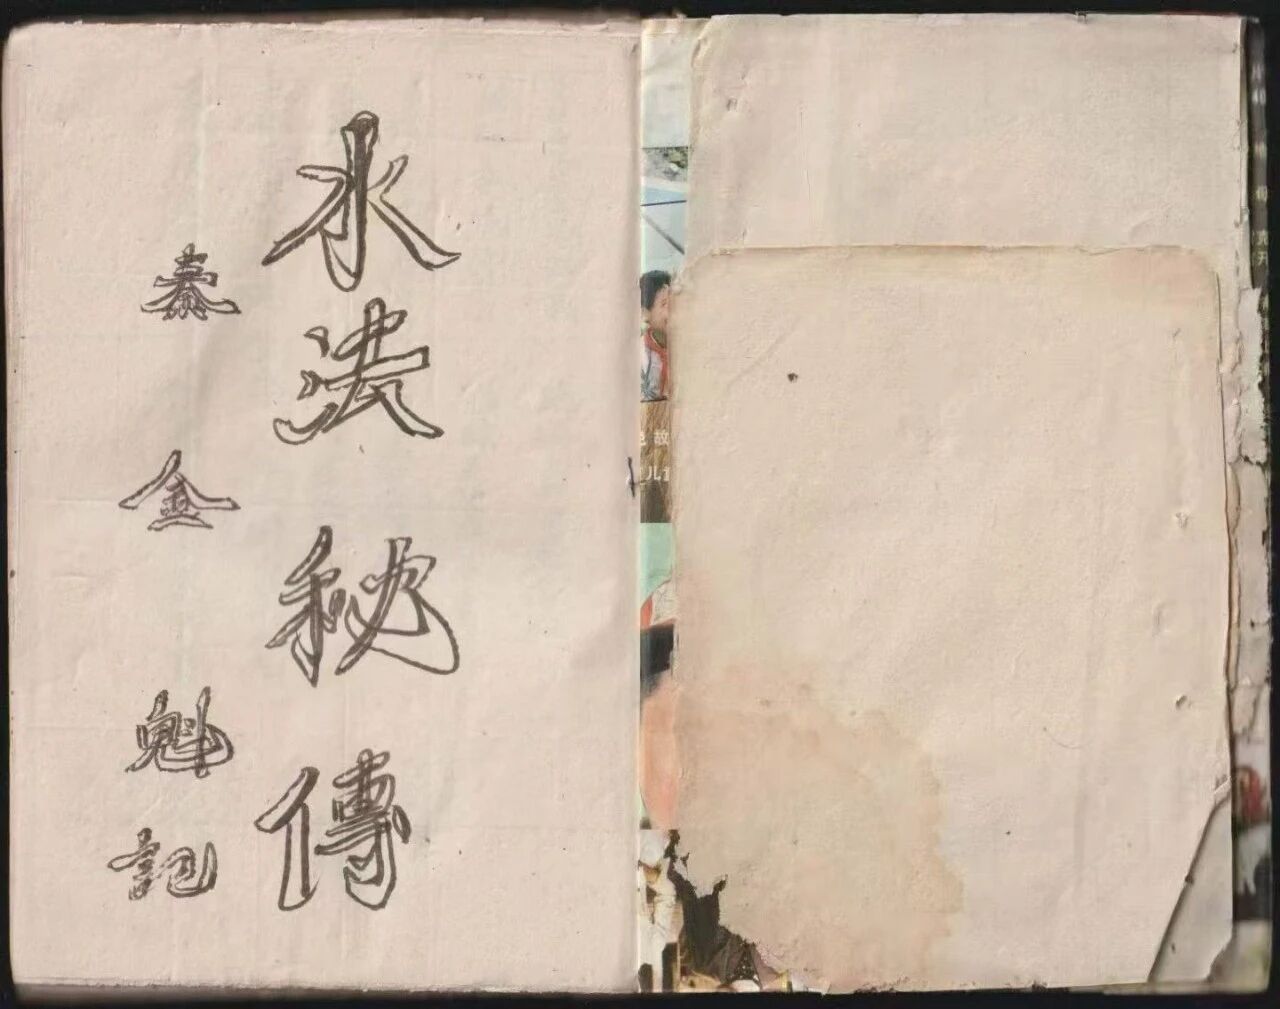 水法秘傳
秦金魁記
故
儿